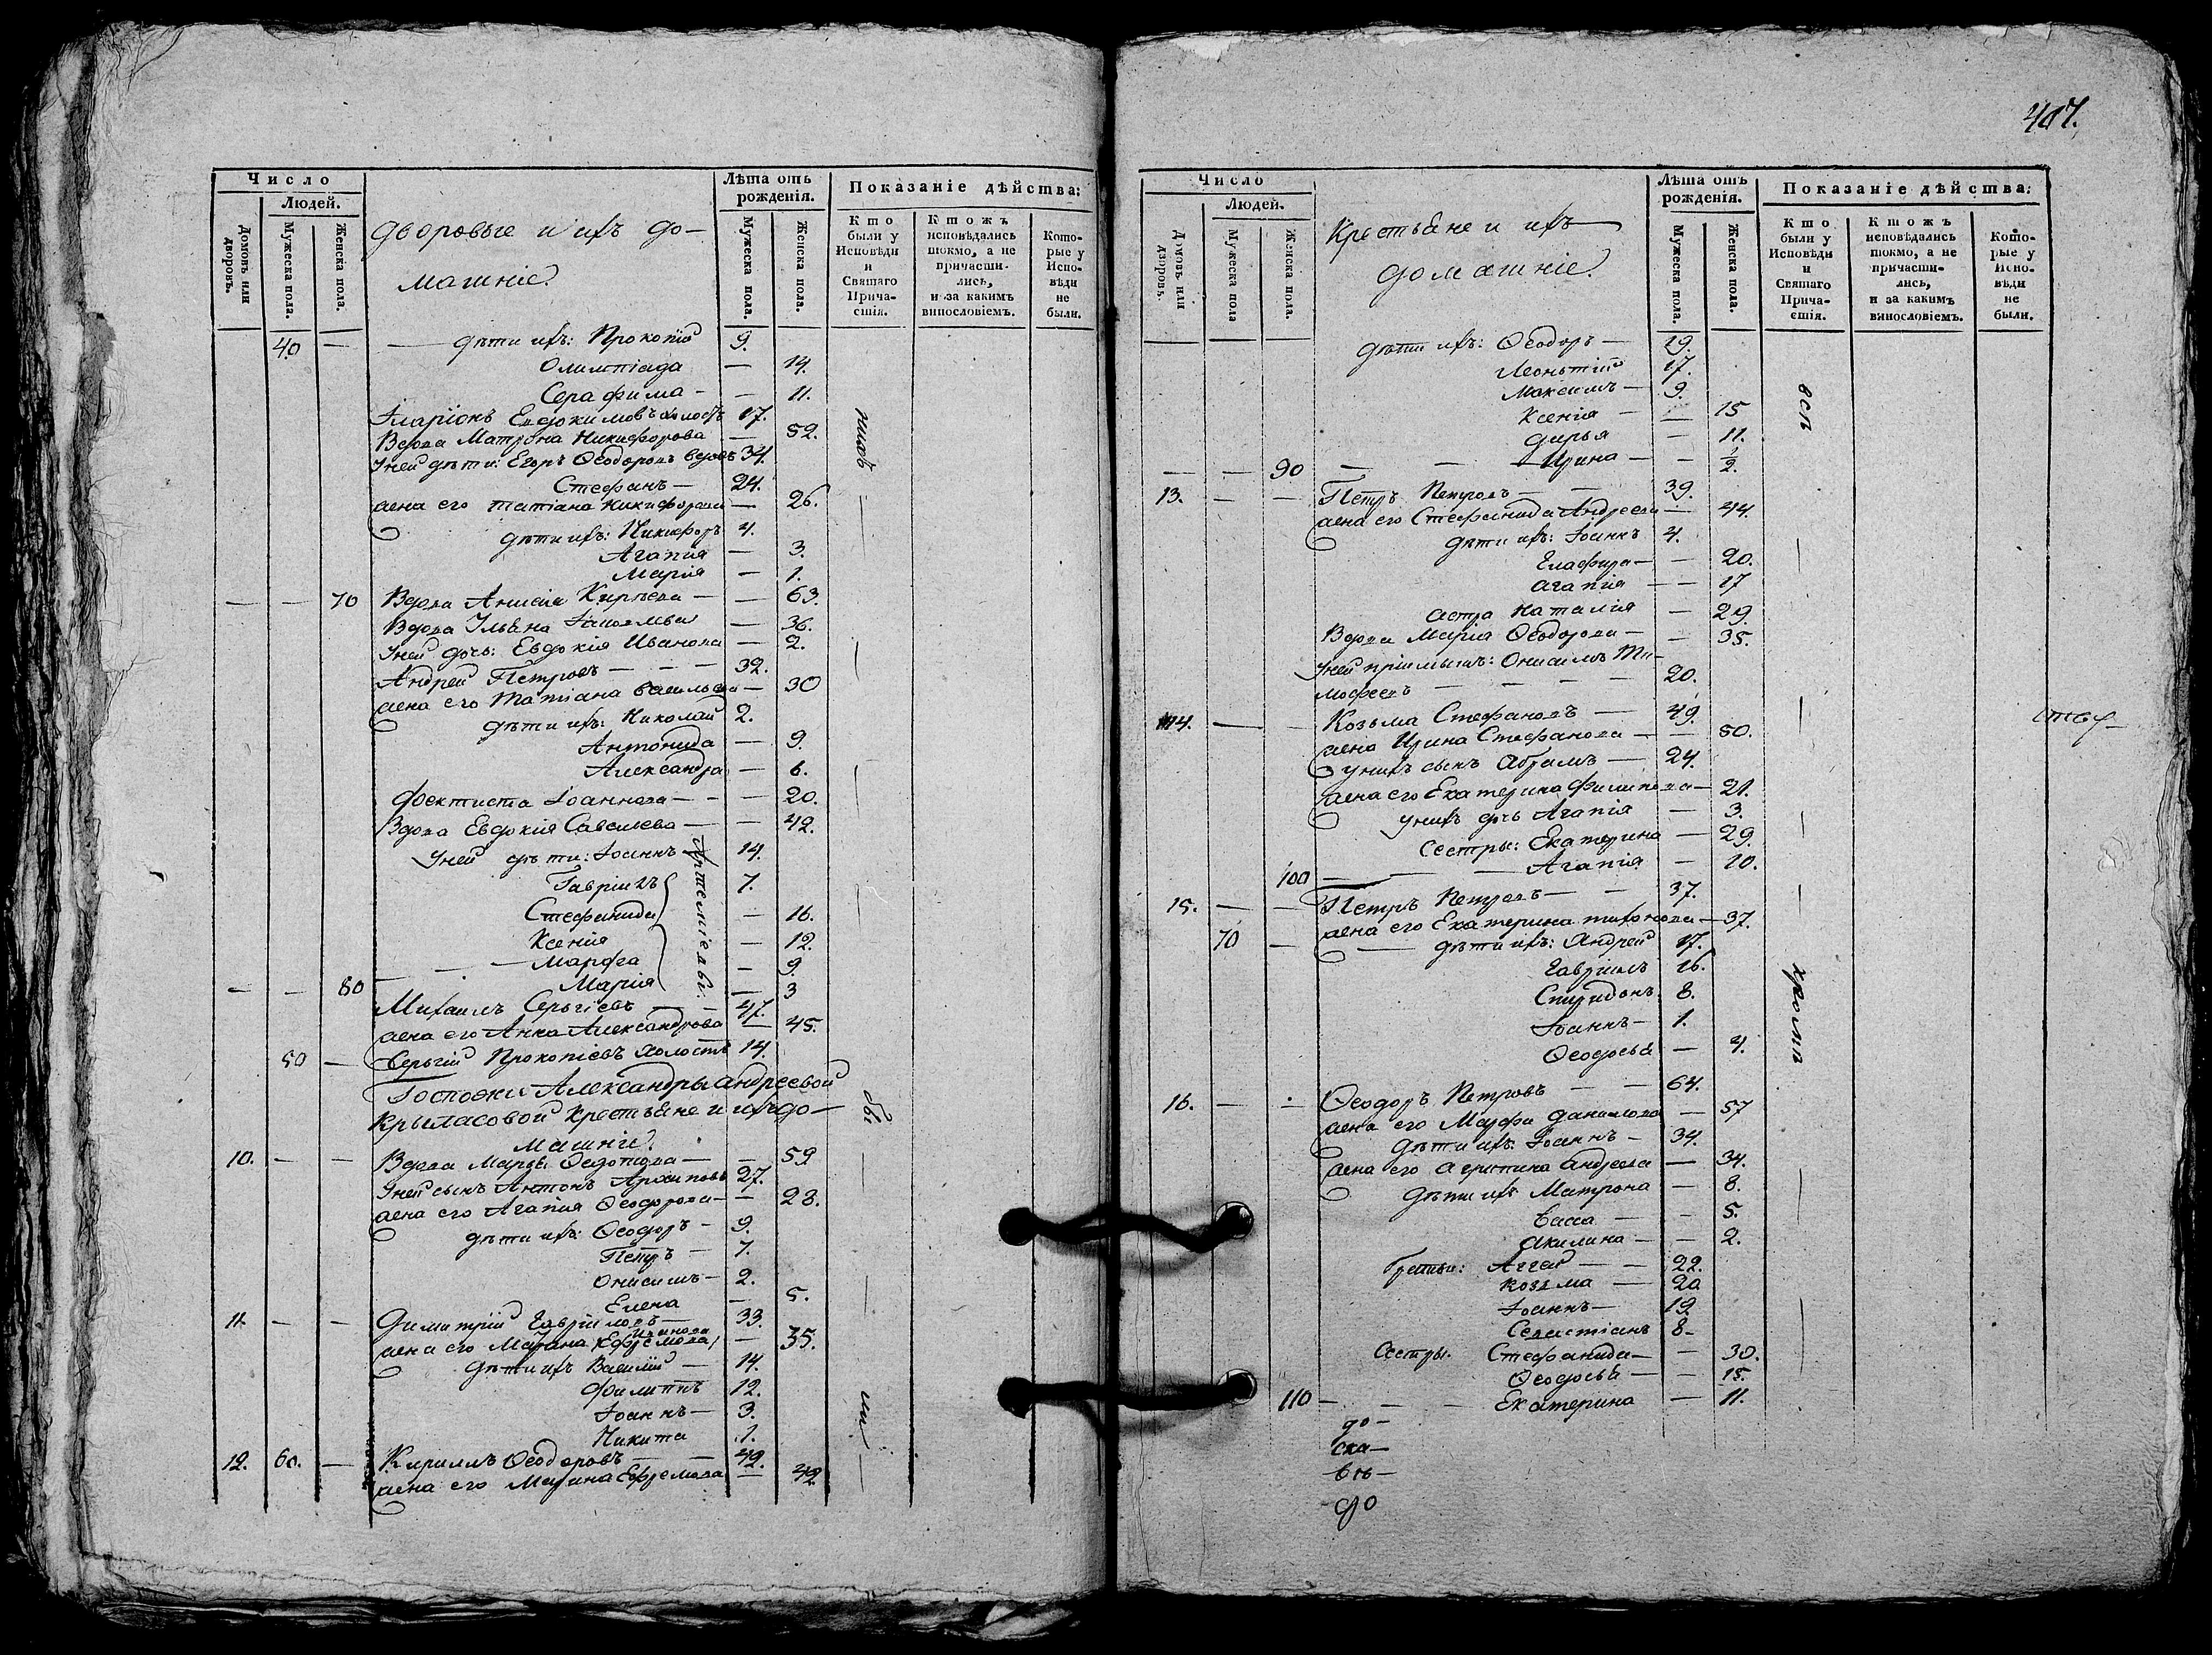 407.
Число
Людей.
Домовъ или дворовъ.
Мужеска пола.
Женска пола.
Дворовые и ихъ до-
машніе
Лѣта отъ рожденія.
Мужеска пола.
Женска пола.
Показаніе дѣйства:
Кто были у Исповѣди и Святаго Причастія.
Ктожъ исповѣдались токмо, а не причастились, и за какимъ винословіемъ.
Которые у Исповѣди не были.
40 — — дѣти ихъ: Прокопій 9.
Олимпіада — 14.
Серафима — — 11.
Іларіонъ Евдокимовъ холостъ 17.
Вдова Матрона Никифорова — 52.
У ней дѣти: Егоръ Ѳеодоровъ вдовъ 34.
Стефанъ — 24.
жена его Татіана Никифорова — 26.
дѣти ихъ: Никифоръ 4.
Агапія — 3.
Марія — 1.
— — 70 Вдова Анисія Карпова — — 63.
Вдова Ульяна — 36.
У ней дочь: Евдокія Иванова — 2.
Андрей Петровъ — — — 32.
жена его Татіана Васильева — 30
дѣти ихъ: Николай 2.
Антонида — 9.
Александра — 6.
Феоктиста Іоаннова — — — 20.
Вдова Евдокія Савельева — — 42.
У ней дѣти: Іоаннъ 14.
Гавріилъ 7.
Стефанида — 16.
Ксенія — 12.
— — Марфа — 9.
— — 80 — Марія — 3
Михаилъ Сергіевъ — 47.
жена его Анна Александрова — 45.
50 — Сергій Прокопіевъ холостъ 14.
Госпожи Александры Андреевой
Крыласовой крестьяне и ихъ до-
машніе.
10. — — Вдова Марѳа Ѳедотова — — 59
У ней сынъ Антонъ Архиповъ 27.
жена его Агапія Ѳеодорова — — 28.
дѣти ихъ: Ѳеодоръ — 9.
Петръ — 7.
Онисимъ — 2.
Елена — 5.
11. — — Димитрій Гавріиловъ — 33.
жена его Ефремова — 35.
дѣти ихъ Василій — 14.
Филиппъ 12.
Іоаннъ — 3.
Никита 1.
12. 60. — Кириллъ Ѳеодоровъ — — 42.
жена его Марина Ефремова — 42
бы
ли
Число
Людей.
Домовъ или дворовъ.
Мужеска пола
Женска пола.
Крестьяне и ихъ
домашніе
Лѣта отъ рожденія.
Мужеска пола.
Женска пола.
Показаніе дѣйства:
Кто были у Исповѣди и Святаго Причастія.
Ктожъ исповѣдались токмо, а не причастились, и за какимъ винословіемъ.
Которые у Исповѣди не были.
дѣти ихъ: Ѳеодоръ — 19.
Леонтій 17.
Максимъ — 9.
Ксенія — — 15
Дарья — 11.
— — 90 — — — Ирина — — 1/2.
13. — — Петръ Петровъ — — 39.
жена его Стефанида Андреева — 44.
дѣти ихъ: Іоаннъ 4.
Глафира — — 20.
Агапія — — 17
Сестра Наталія — 29.
Вдова Марія Ѳеодорова — — 35.
У ней пріимышъ: Онисимъ Ти-
мофеевъ — — — — 20.
14. — — Козьма Стефановъ — 49.
жена Ирина Стефанова — — 50.
у нихъ сынъ Абрамъ — 24.
жена его Екатерина Филипова — 21.
у нихъ дочь Агапія — 3.
Сестры: Екатерина — 29.
100 — — — Агапія — 10.
15. — — Петръ Петровъ — — 37.
жена его Екатерина Тихонова — 37.
70 — — дѣти ихъ: Андрей 17.
Гавріилъ 16.
Спиридонъ 8.
Іоаннъ — 1.
Ѳеодосья — 4.
16. — — Ѳеодоръ Петровъ — — 64.
жена его Марфа Данилова — 57
дѣти ихъ Іоаннъ — 34.
жена его Агрипина Андреева — 34.
дѣти ихъ Матрона — 8.
Васса — — 5.
Акилина — — 2.
Братья: Аггей — — 22.
Козьма — 20
Іоаннъ — 12
Севастіанъ 8.
Сестры. Стефанида — — 30.
Ѳеодосья — — 15.
110 — — — Екатерина — 11.
всѣ
кромѣ
до —
ска —
въ —
до